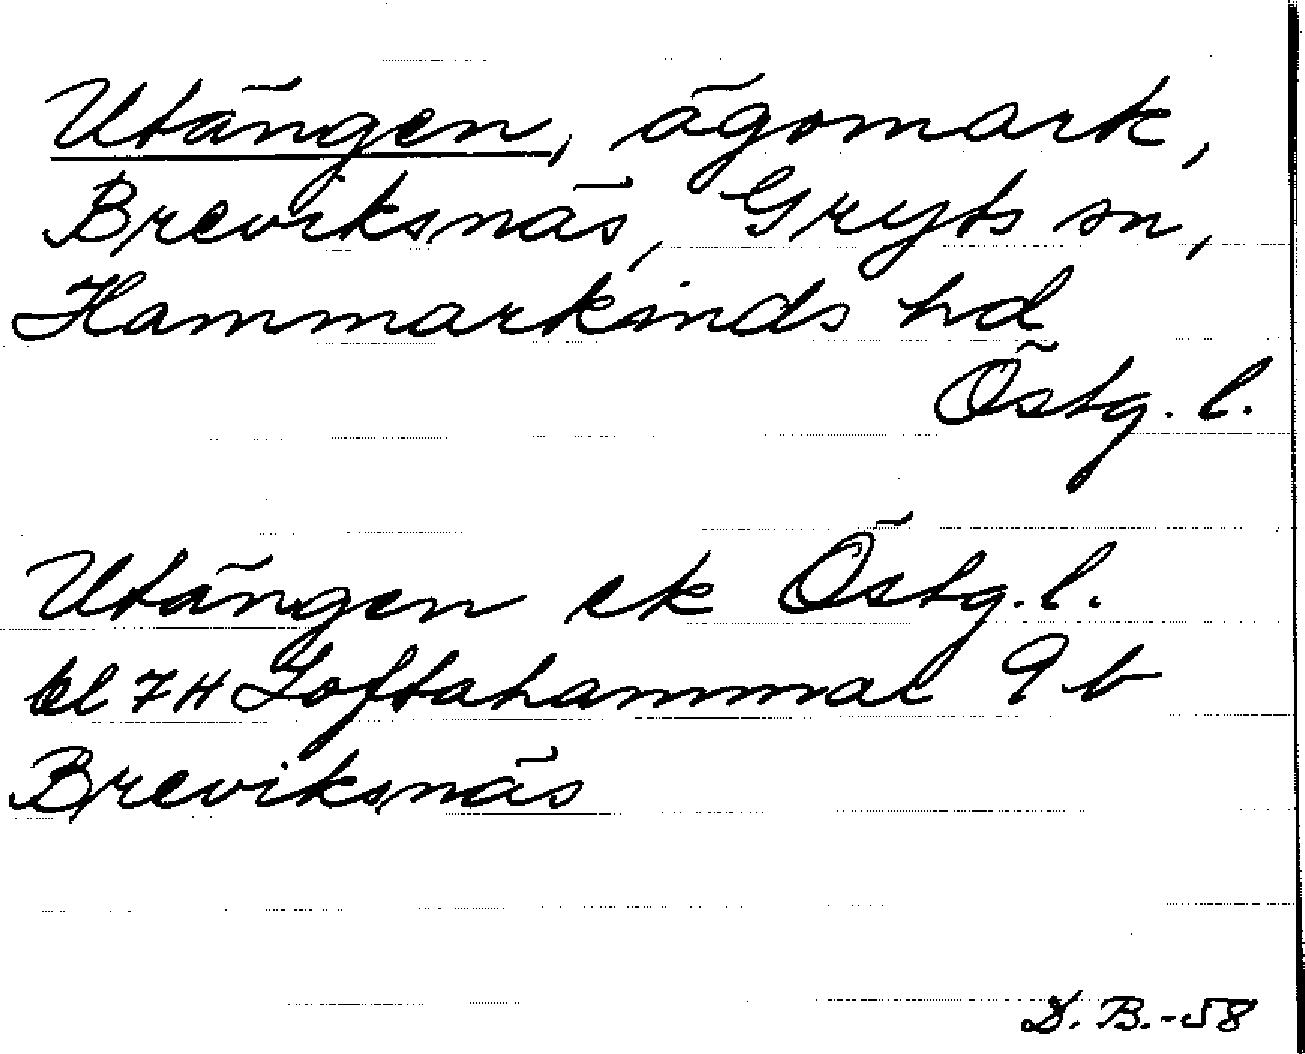 Utängen, ägomark,
Breviksnäs, Gryts sn,
Hammarkinds hd
Östg. l.
Utängen ek Östg. l.
bl 7H Loftahammar 9 b
Breviksnäs
D. B. -58